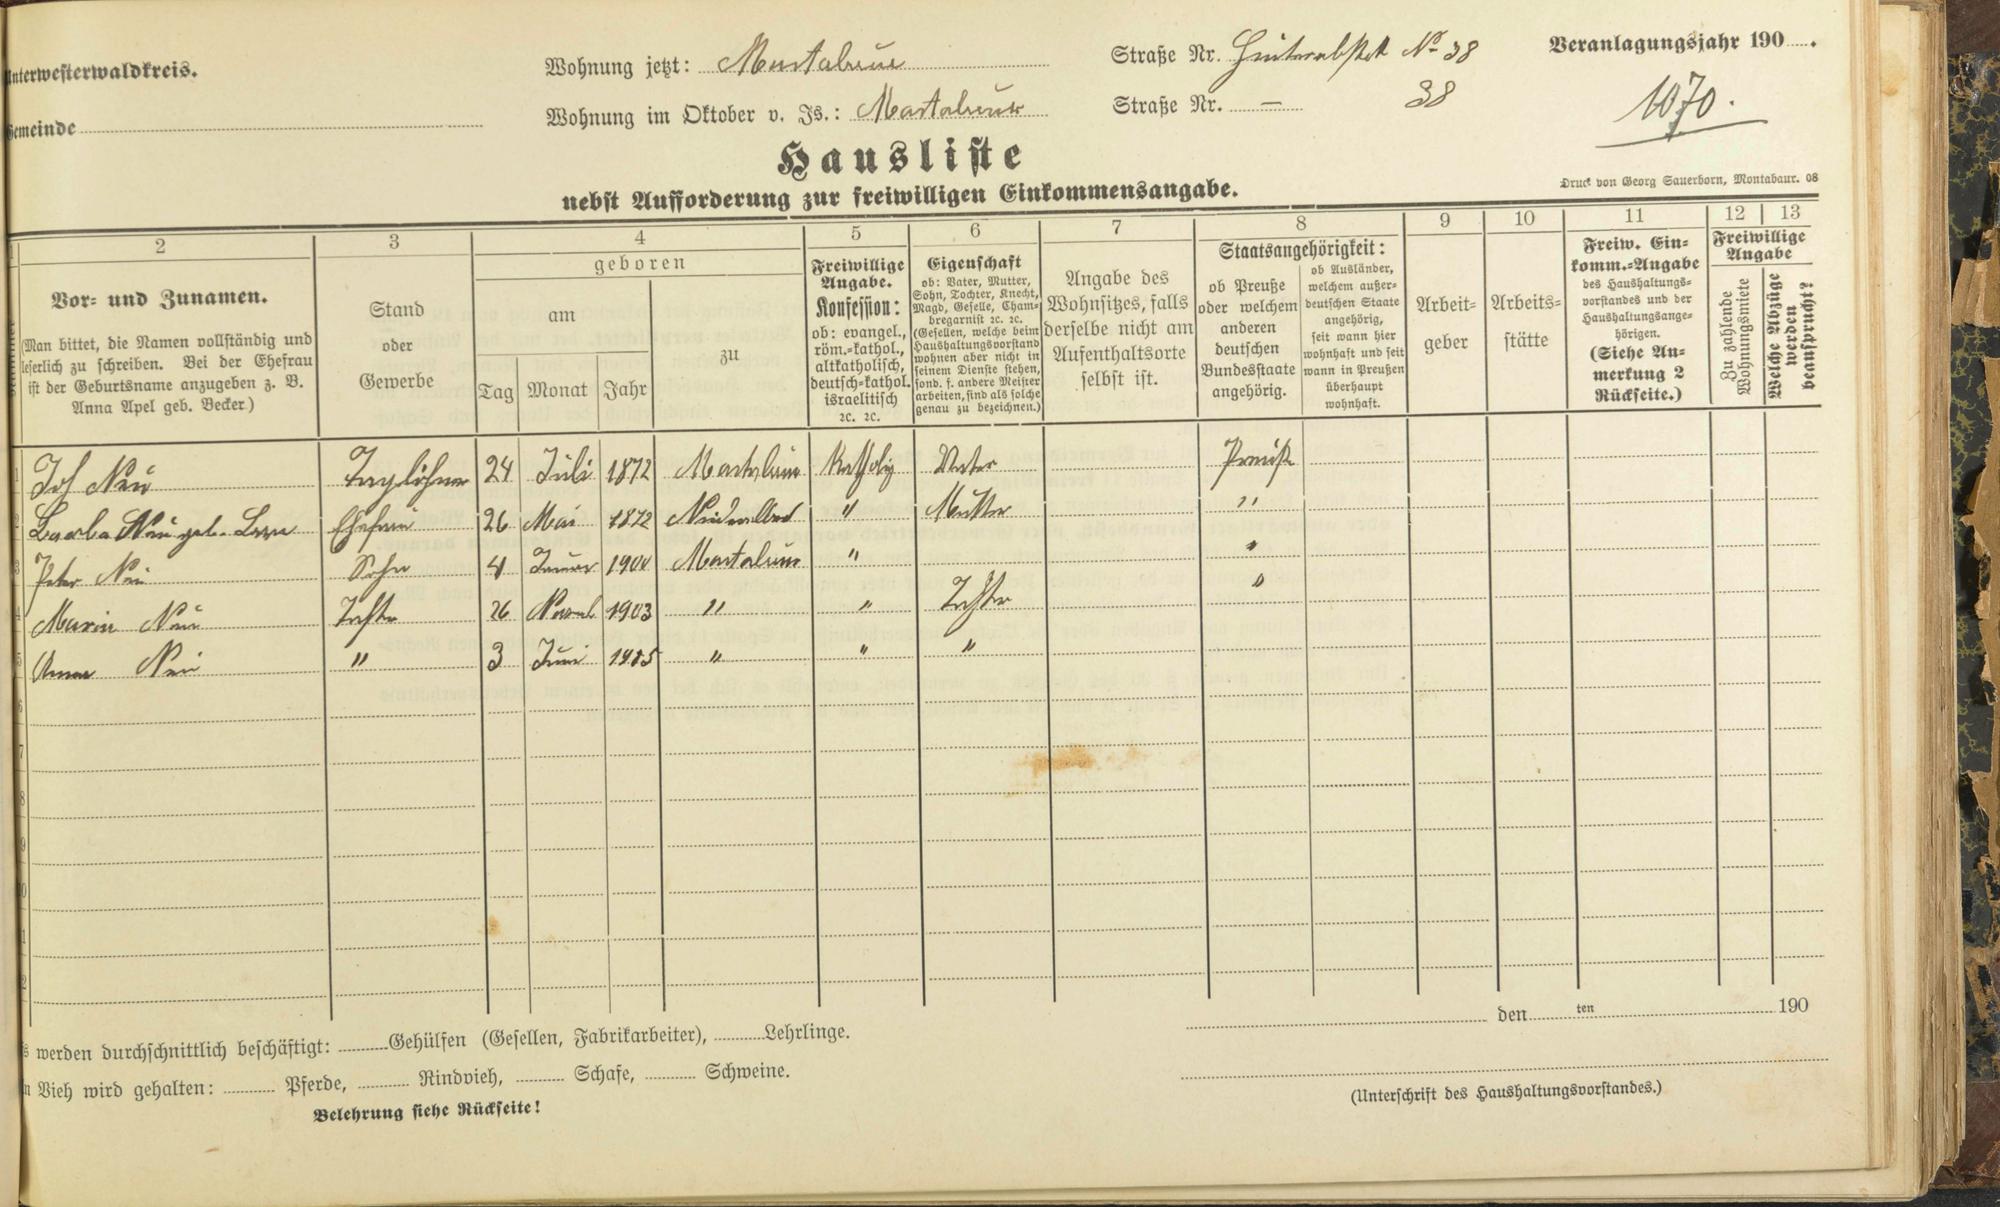 Unterwesterwaldkreis.
Gemeinde
Wohnung jetzt: Montabaur
Straße Nr. No 38
Veranlagungsjahr 190 .
Wohnung im Oktober v. Js.: Montabaur
Straße Nr. — 38
1070.
Hausliste
nebst Aufforderung zur freiwilligen Einkommensangabe.
Druck von Georg Sauerborn, Montabaur. 08
1 2 3 4 5 6 7 8 9 10 11 12 13
Nummer
Vor- und Zunamen.
(Man bittet, die Namen vollständig und
leserlich zu schreiben. Bei der Ehefrau
ist der Geburtsname anzugeben z. B.
Anna Apel geb. Becker.)
Stand
oder
Gewerbe
geboren
am
Tag Monat Jahr
zu
Freiwillige
Angabe.
Konfession:
ob: evangel.,
röm.-kathol.,
altkatholisch,
deutsch-kathol.
israelitisch
ꝛc. ꝛc.
Eigenschaft
ob: Vater, Mutter,
Sohn, Tochter, Knecht,
Magd, Geselle, Cham-
bregarnist ꝛc. ꝛc.
(Gesellen, welche beim
Haushaltungsvorstand
wohnen aber nicht in
seinem Dienste stehen,
sond. f. andere Meister
arbeiten, sind als solche
genau zu bezeichnen.)
Angabe des
Wohnsitzes, falls
derselbe nicht am
Aufenthaltsorte
selbst ist.
Staatsangehörigkeit:
ob Preuße
oder welchem
anderen
deutschen
Bundesstaate
angehörig.
ob Ausländer,
welchem außer-
deutschen Staate
angehörig,
seit wann hier
wohnhaft und seit
wann in Preußen
überhaupt
wohnhaft.
Arbeit-
geber
Arbeits-
stätte
Freiw. Ein-
komm.-Angabe
des Haushaltungs-
vorstandes und der
Haushaltungsange-
hörigen.
(Siehe An-
merkung 2
Rückseite.)
Freiwillige
Angabe
Zu zahlende
Wohnungsmiete
Welche Abzüge
werden
beansprucht?
1 Joh Neu Taglöhner 24 Juli 1872 Montabaur Katholig Vater Preuße
2 Neu geb. Ehefrau 26 Mai 1872 " Mutter "
3 Peter Neu Sohn 4 Januar Montabaur " "
4 Maria Neu Tochter 26 Novemb 1903 " " Tochter "
5 Anna Neu " 3 Juni 1905 " " "
6
7
8
9
10
11
12
Es werden durchschnittlich beschäftigt: Gehülfen (Gesellen, Fabrikarbeiter), Lehrlinge.
An Vieh wird gehalten: Pferde, Rindvieh, Schafe, Schweine.
Belehrung siehe Rückseite!
den ten 190
(Unterschrift des Haushaltungsvorstandes.)